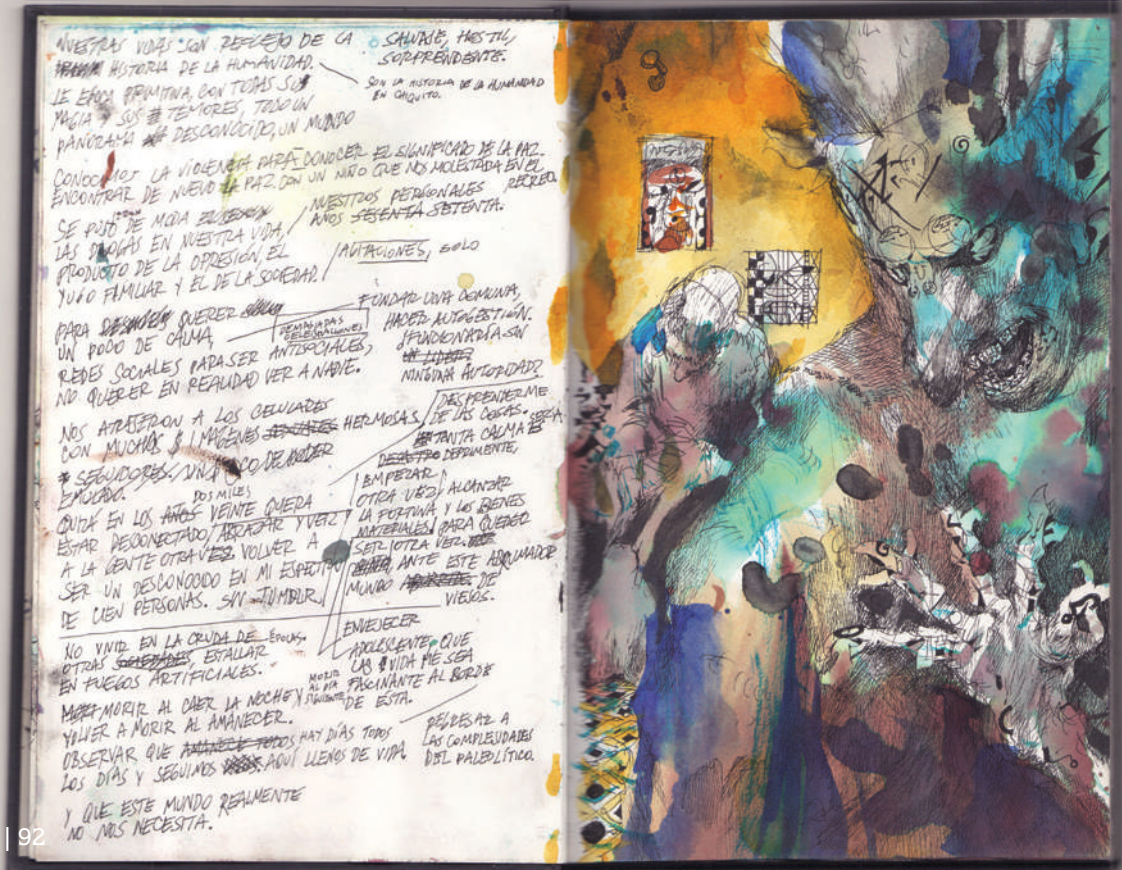 NUESTRAS VIDAS SON REFLEJO DE LA
HISTORIA DE LA HUMANIDAD.
SON LA HISTORIA DE LA HUMANIDAD
EN CHIQUITO.
LE EPOCA PRIMITIVA, CON TODAS SUS
MAGIA Y SUS TEMORES, TODO UN
PANORAMA DESCONOCIDO, UN MUNDO
SALVAJE, HOSTIL,
SORPRENDENTE.
CONOCEMOS LA VIOLENCIA PARA CONOCER EL SIGNIFICADO DE LA PAZ.
ENCONTRAR DE NUEVO LA PAZ. CON UN NIÑO QUE NOS MOLESTABA EN EL
RECREO.
SE PUSO DE MODA
LAS DROGAS EN NUESTRA VIDA,
PRODUCTO DE LA OPRESIÓN, EL
YUGO FAMILIAR Y EL DE LA SOCIEDAD.
NUESTROS PERSONALES
AÑOS SESENTA SETENTA.
AGITACIONES, SOLO
PARA QUERER
UN POCO DE CALMA,
DEMASIADAS
REDES SOCIALES PARA SER ANTISOCIALES,
NO QUERER EN REALIDAD VER A NADIE.
FUNDAR UNA COMUNA,
HACER AUTOGESTIÓN.
¿FUNCIONARÍA SIN
NINGUNA AUTORIDAD?
NOS ATRAJERON A LOS CELULARES
CON MUCHAS IMÁGENES HERMOSAS,
SEGUIDORES,
DESPRENDERME
DE LAS COSAS.
TANTA CALMA SERIA
DEPRIMENTE,
QUIZÁ EN LOS AÑOS DOS MILES VEINTE QUERA
ESTAR DESCONECTADO/ABRAZAR Y VER
A LA GENTE OTRA VEZ VOLVER A
SER UN DESCONOCIDO EN MI ESPECTRO
DE CIEN PERSONAS. SIN TUMBLR.
EMPEZAR
OTRA VEZ, ALCANZAR
LA FORTUNA Y LOS BIENES
MATERIALES, PARA QUERER
SER OTRA VEZ
ANTE ESTE ABRUMADOR
MUNDO DE
VIEJOS.
NO VIVIR EN LA CRUDA DE ÉPOCAS
OTRAS SOCIEDADES, ESTALLAR
EN FUEGOS ARTIFICIALES.
ENVEJECER
ADOLESCENTE, QUE
LAS VIDA ME SEA
FASCINANTE AL BORDE
DE ESTA.
MORIR AL CAER LA NOCHE Y MORIR AL DÍA SIGUIENTE
VOLVER A MORIR AL AMANECER.
OBSERVAR QUE AMANECE TODOS HAY DÍAS TODOS
LOS DÍAS Y SEGUIMOS AQUÍ LLENOS DE VIDA.
REGRESAR A
LAS COMPLEJIDADES
DEL PALEOLÍTICO.
Y QUE ESTE MUNDO REALMENTE
NO NOS NECESITA.
| 92